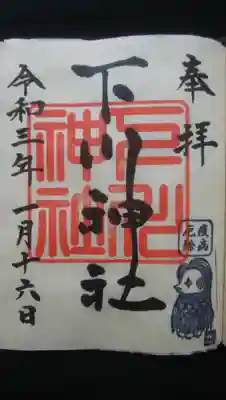 奉拝
疫病
厄除
下川神社
神社
令和三年 一月十六日